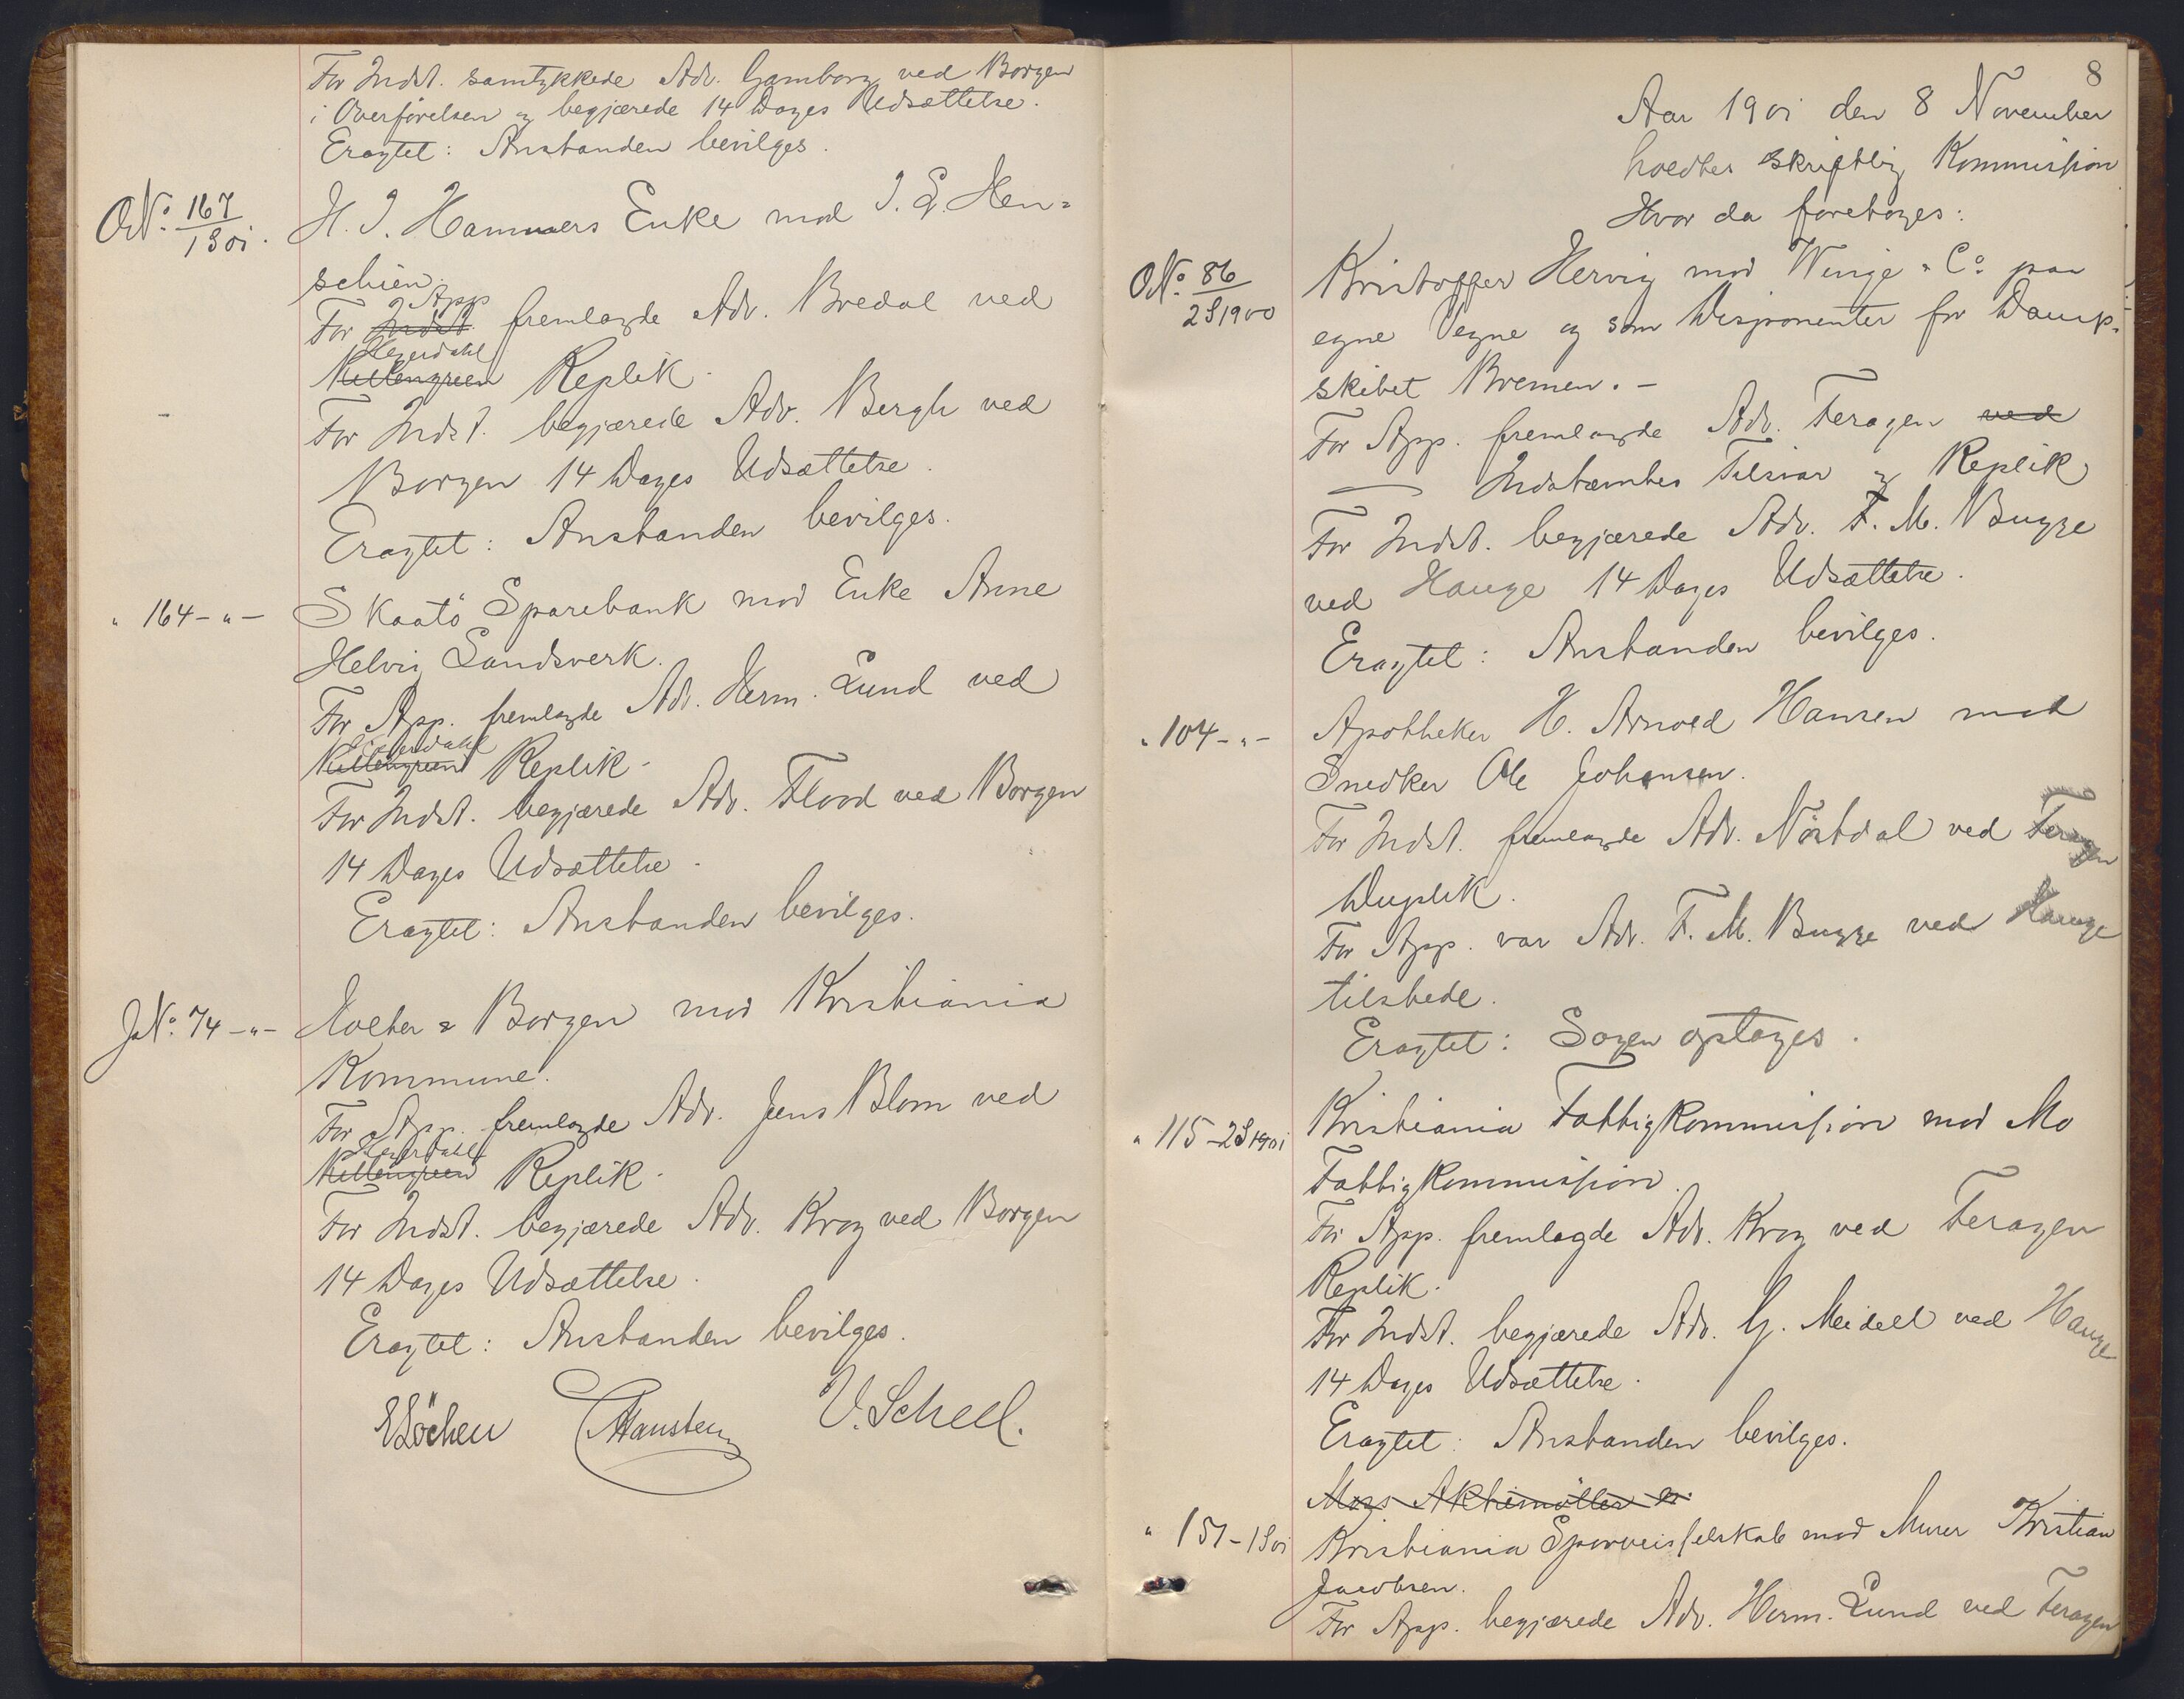 For Indst. samtykkede Adv. Gamborg ved Borgen
i Overførelsen og begjærede 14 Dages Udsættelse.
Eragtet: Anstanden bevilges.
O№ 167/1S01. H. J. Hammers Enke mod J. L. Hen=
schien.
App
For Indst. fremlagde Adv. Bredal ved
Heyerdahl
Killengreen Replik.
For Indst. begjærede Adv. Bergh ved
Borgen 14 Dages Udsættelse.
Eragtet: Anstanden bevilges.
" 164-"- Skaatö Sparebank mod Enke Anne
Helvig Landsverk.
For App. fremlagde Adv. Herm. Lund ved
Heyerdahl
Killengreen Replik.
For Indst. begjærede Adv. Flood ved Borgen
14 Dages Udsættelse.
Eragtet: Anstanden bevilges.
J№ 74-"- Holter & Borgen mod Kristiania
Kommune.
For App. fremlagde Adv. Jens Blom ved
Heyerdahl
Killengreen Replik.
For Indst. begjærede Adv. Krog ved Borgen
14 Dages Udsættelse.
Eragtet: Anstanden bevilges.
E Löchen Hansteen V. Scheel.
8
Aar 1901 den 8 November
holdtes skriftlig Kommission
Hvor da foretoges:
O№ 86/2S1900 Kristoffer Hervig mod Winge & Co paa
egne Vegne og som Disponenter for Damp-
skibet Bremen. -
For App. fremlagde Adv. Feragen ved
— Indstævntes Tilsvar og Replik
For Indst. begjærede Adv. F. M. Bugge
ved Hauge 14 Dages Udsættelse.
Eragtet: Anstanden bevilges.
" 104-"- Apotheker H. Arnold Hansen mod
Snedker Ole Johansen.
For Indst. fremlagde Adv. Nörstdal ved Feragen
Duplik.
For App. var Adv. F. M. Bugge ved Hauge
tilstede.
Eragtet: Sagen optages.
" 115-2S1901 Kristiania Fattigkommission mod Mo
Fattigkommission.
For App. fremlagde Adv. Krog ved Feragen
Replik.
For Indst. begjærede Adv. G. Meidell ved Hauge
14 Dages Udsættelse.
Eragtet: Anstanden bevilges.
Moss Aktiemöller
" 151-1S01 Kristiania Sporveisselskab mod Murer Kristian
Jacobsen.
For App. begjærede Adv. Herm. Lund ved Feragen